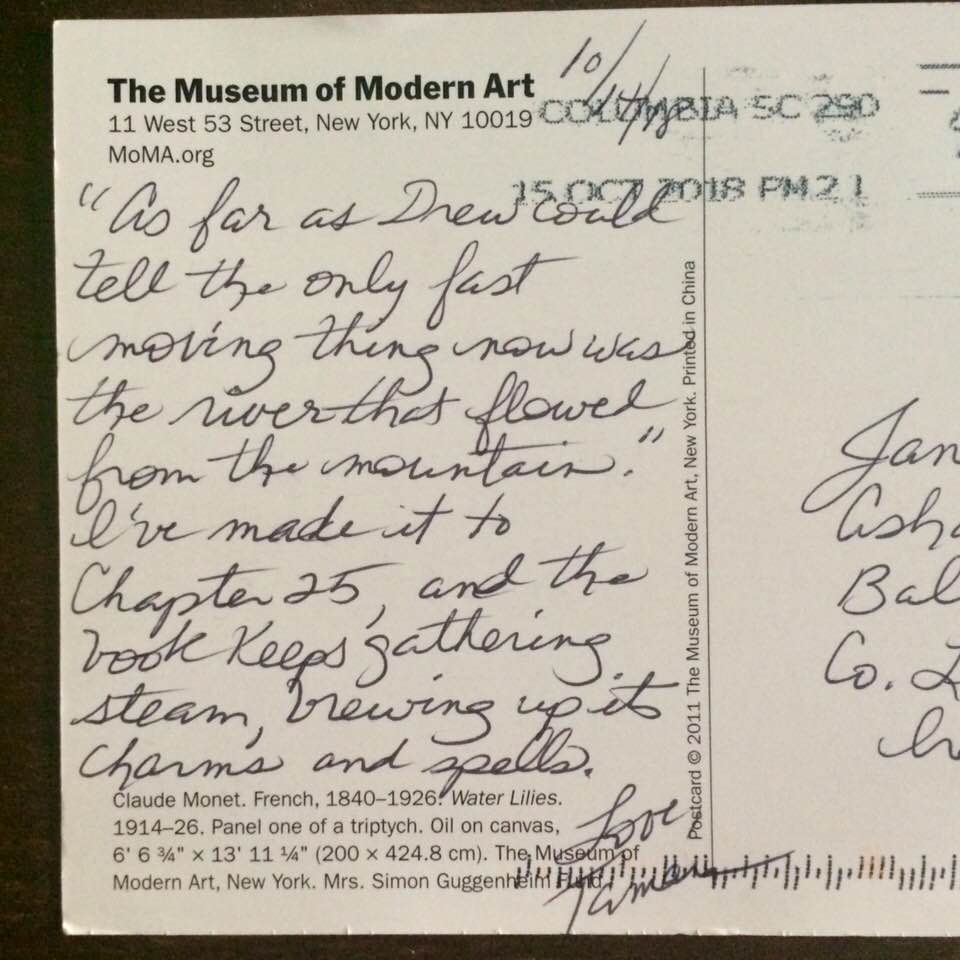 The Museum of Modern Art
11 West 53 Street, New York, NY 10019
MoMA.org
10/14/18
COLUMBIA SC 290
15 OCT 2018 PM 2 L
"As far as Drew could
tell the only fast
moving thing now was
the river that flowed
from the mountain."
I've made it to
Chapter 25, and the
book keeps gathering
steam, brewing up its
charms and spells.
Love
Claude Monet. French, 1840–1926. Water Lilies.
1914–26. Panel one of a triptych. Oil on canvas,
6' 6 ¾" × 13' 11 ¼" (200 × 424.8 cm). The Museum of
Modern Art, New York. Mrs. Simon Guggenheim Fund
Postcard © 2011 The Museum of Modern Art, New York. Printed in China
Jan
Bal
Co.